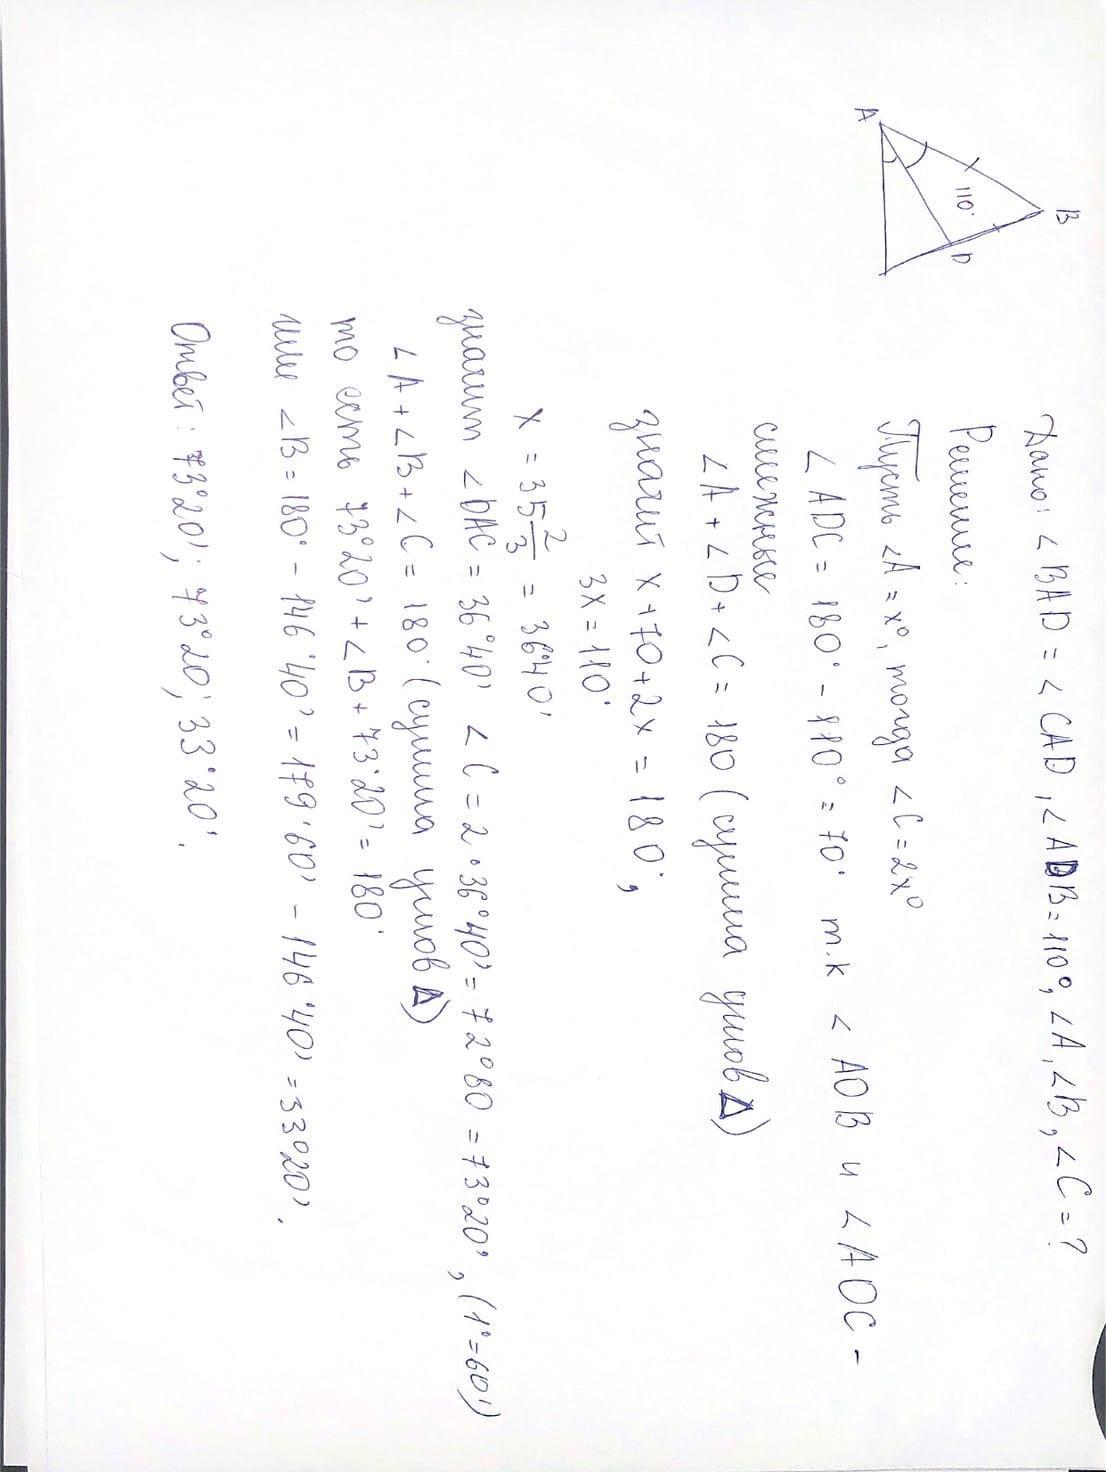 A
B
D
110°
Дано: ∠BAD = ∠CAD, ∠ADB = 110°, ∠A, ∠B, ∠C = ?
Решение:
Пусть ∠A = x°, тогда ∠C = 2x°
∠ADC = 180° - 110° = 70° т.к ∠ AOB и ∠AOC -
смежные
∠A + ∠D + ∠C = 180 (сумма углов Δ)
значит x + 70 + 2x = 180°,
3x = 110°
x = 35 2/3 = 36°40'
значит ∠BAC = 36°40' ∠C = 2 · 36°40' = 72°80 = 73°20', (1° = 60')
∠A + ∠B + ∠C = 180° (сумма углов Δ)
то есть 73°20' + ∠B + 73°20' = 180°
или ∠B = 180° - 146°40' = 179°60' - 146°40' = 33°20'.
Ответ: 73°20'; 73°20'; 33°20'.